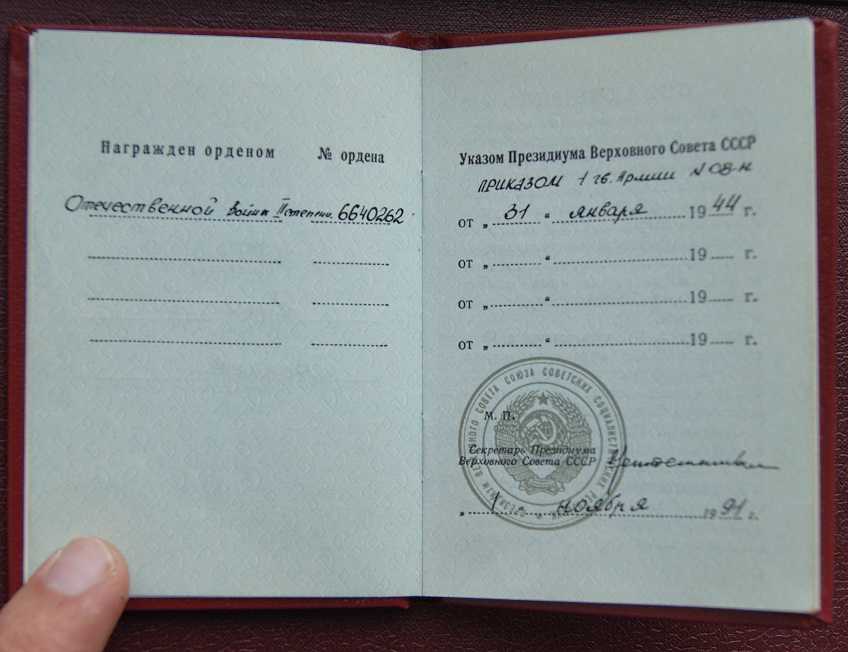 Награжден орденом № ордена
Отечественной войны II степени. 6640262
Указом Президиума Верховного Совета СССР
ПРИКАЗОМ 1 гв. Армии N 08-н
от „ 31 “ января 1944 г.
от „ “ 19 г.
от „ “ 19 г.
от „ “ 19 г.
ПРЕЗИДИУМ ВЕРХОВНОГО СОВЕТА СОЮЗА СОВЕТСКИХ СОЦИАЛИСТИЧЕСКИХ РЕСПУБЛИК
М. П.
Секретарь Президиума
Верховного Совета СССР
„ “ ноября 1991 г.